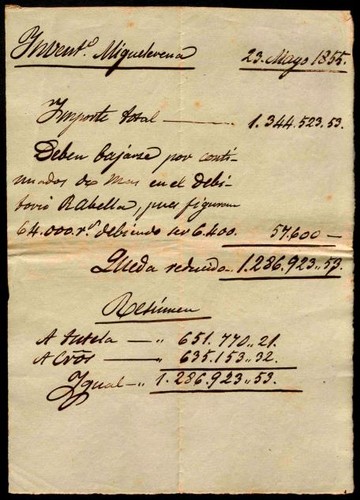 Invent.º Miquelerena 23. Mayo 1855.
Importe total — 1.344.523.53.
Deben bajarse por conti-
nuados de mas en el debi-
torio Rabella, pues figuran
64.000 r.s debiendo ser 6.400. 57.600 —
Queda reducido 1.286.923.,53.
Resúmen
A tutela — ,, 651.770.,21.
A Cros — ,, 635.153.,32.
Igual ,, 1.286.923.,53.